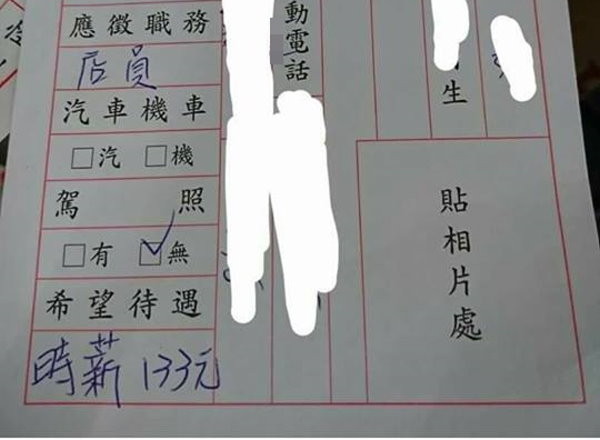 應徵職務
店員
汽車機車
□汽 □機
駕照
□有 ☑無
希望待遇
時薪 133元
動電話
生
貼相片處